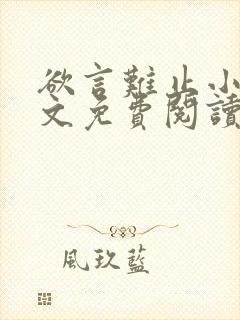 欲言難止小
文免費閱讀
風玖藍